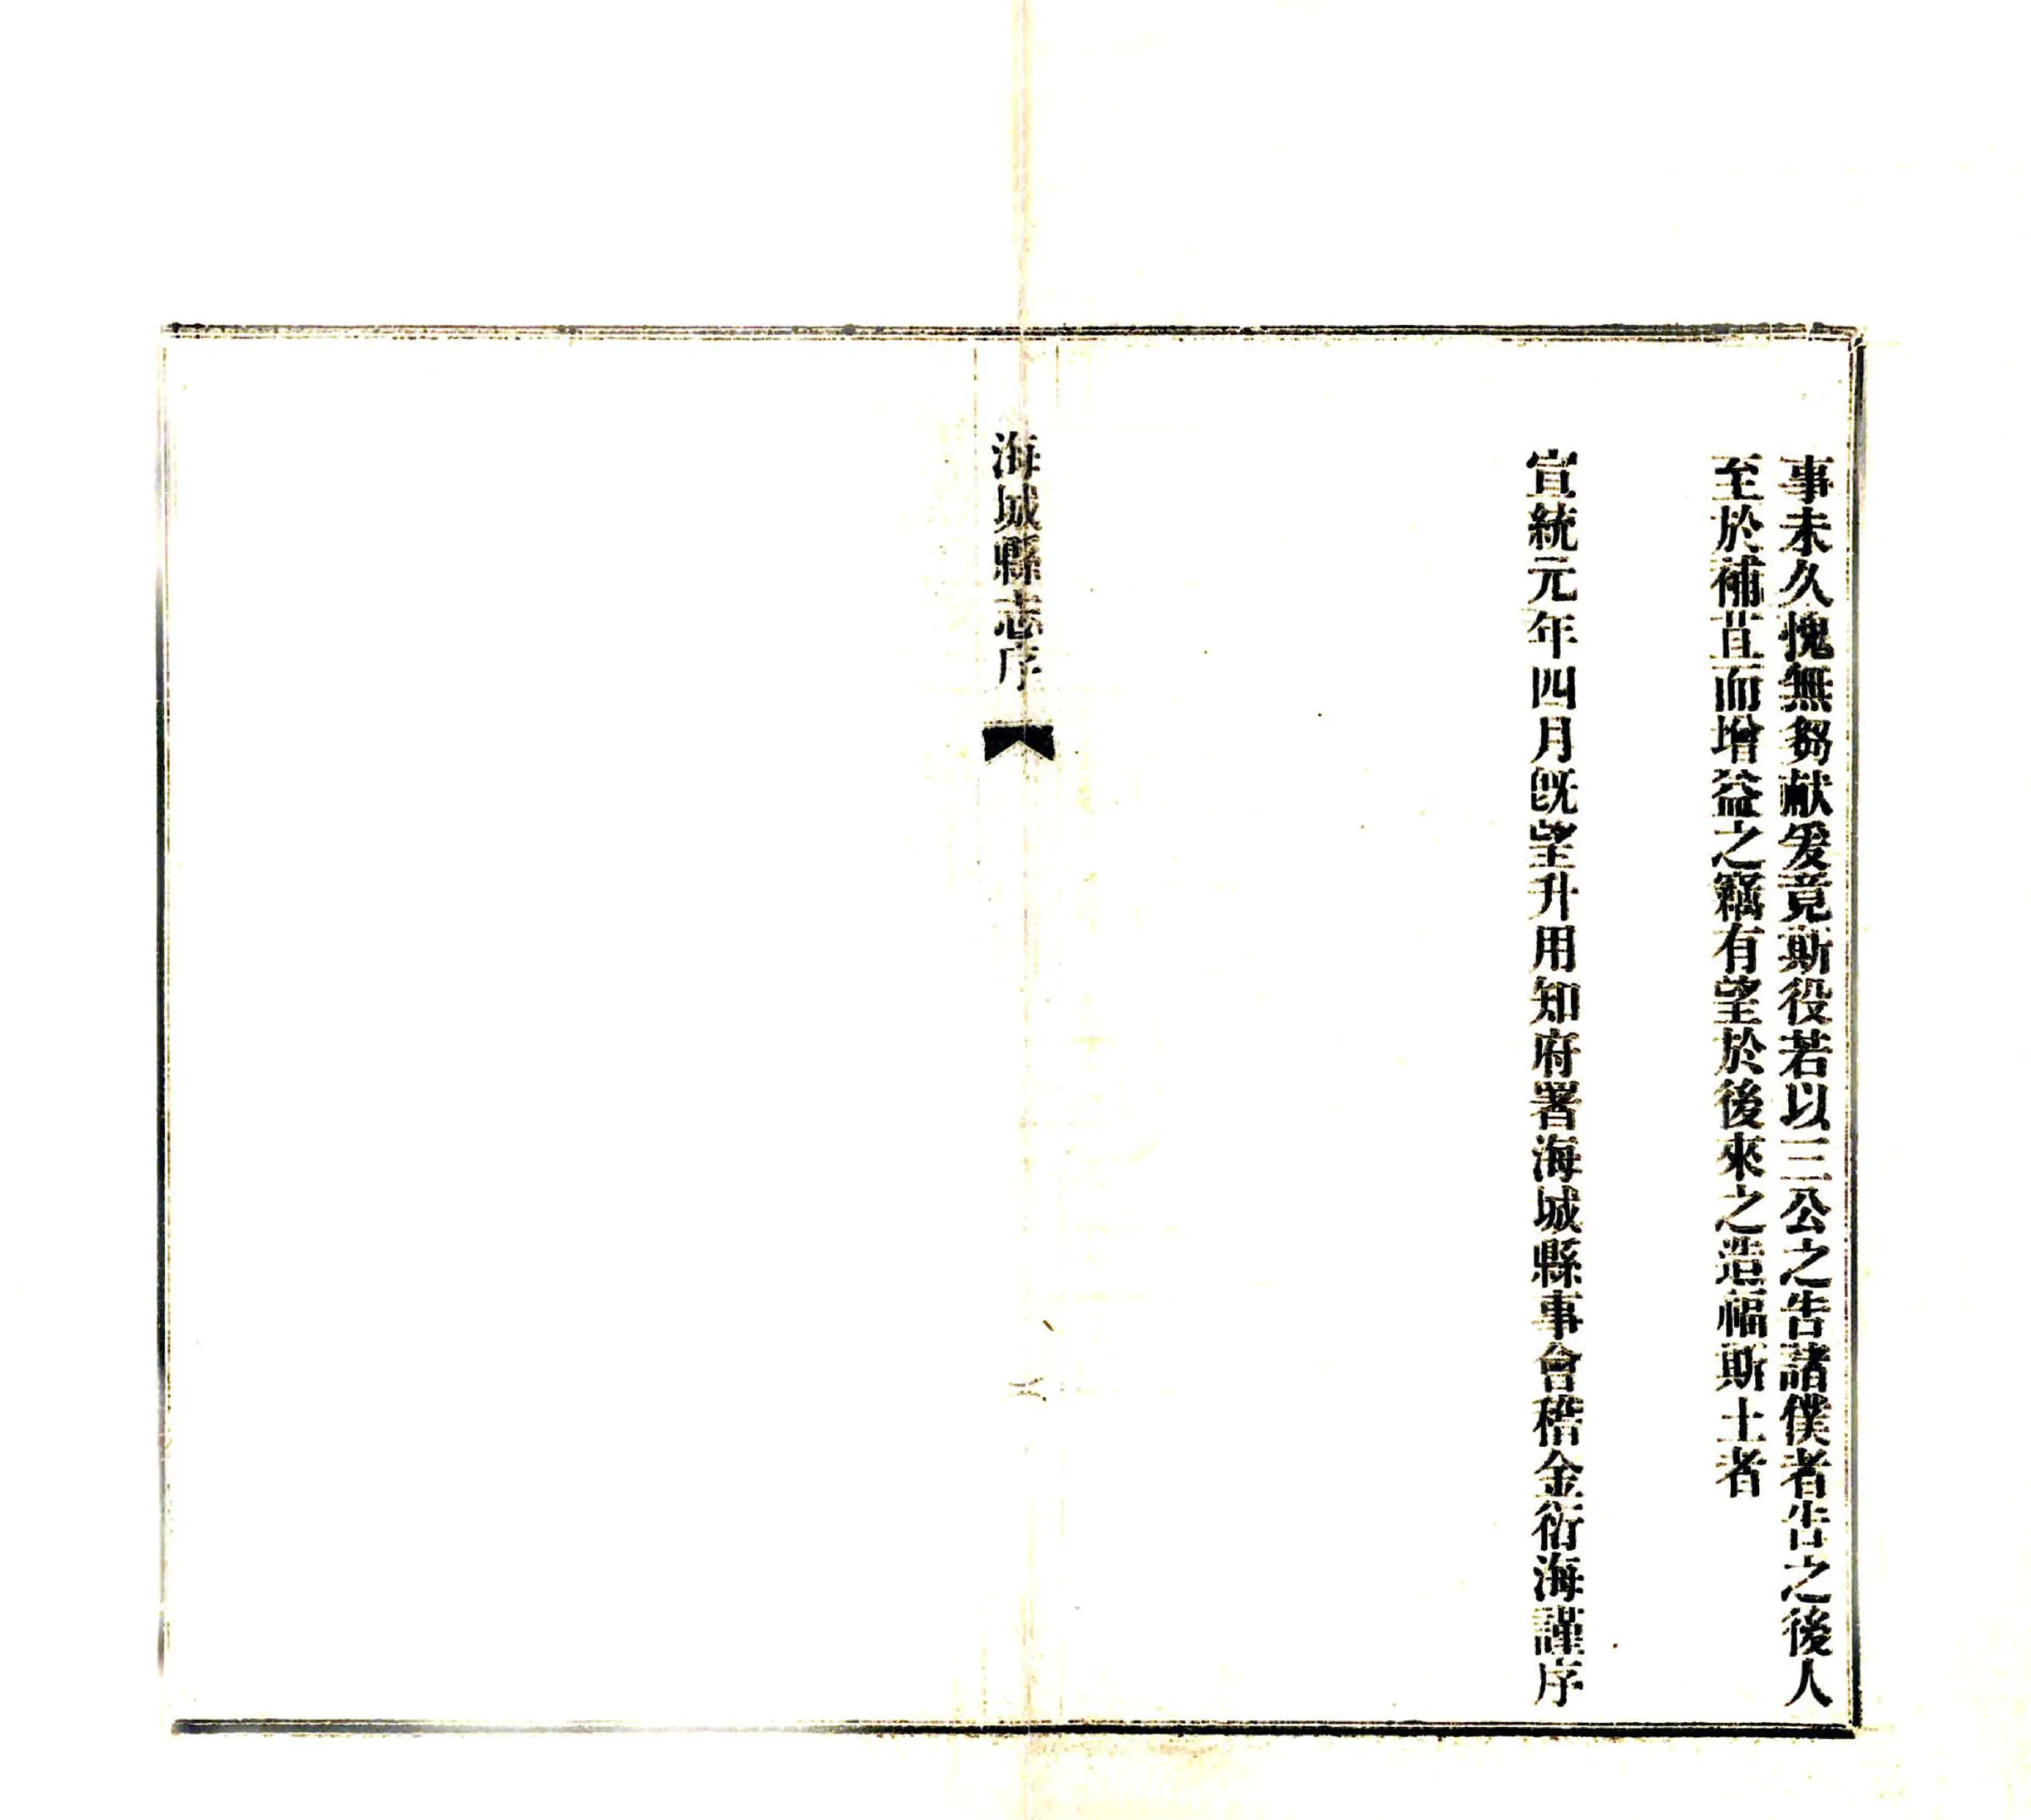 事未久愧無芻献爰竟斯役若以三公之告諸僕者告之後人
至於補苴而增益之竊有望於後來之造福斯土者
宣統元年四月既望升用知府署海城縣事會稽金衍海謹序
海城縣志序